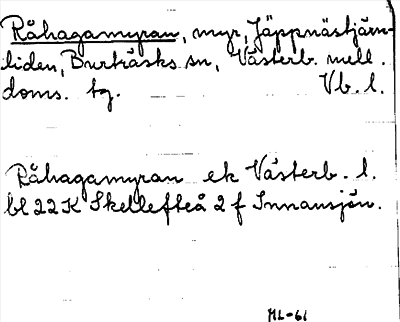 Råhagamyran, myr, Jäppnästjärn-
liden, Burträsks sn, Västerb. mell.
doms. tg. Vb. l.
Råhagamyran ek Västerb. l.
bl 22K Skellefteå 2 f Innansjön.
ML-61